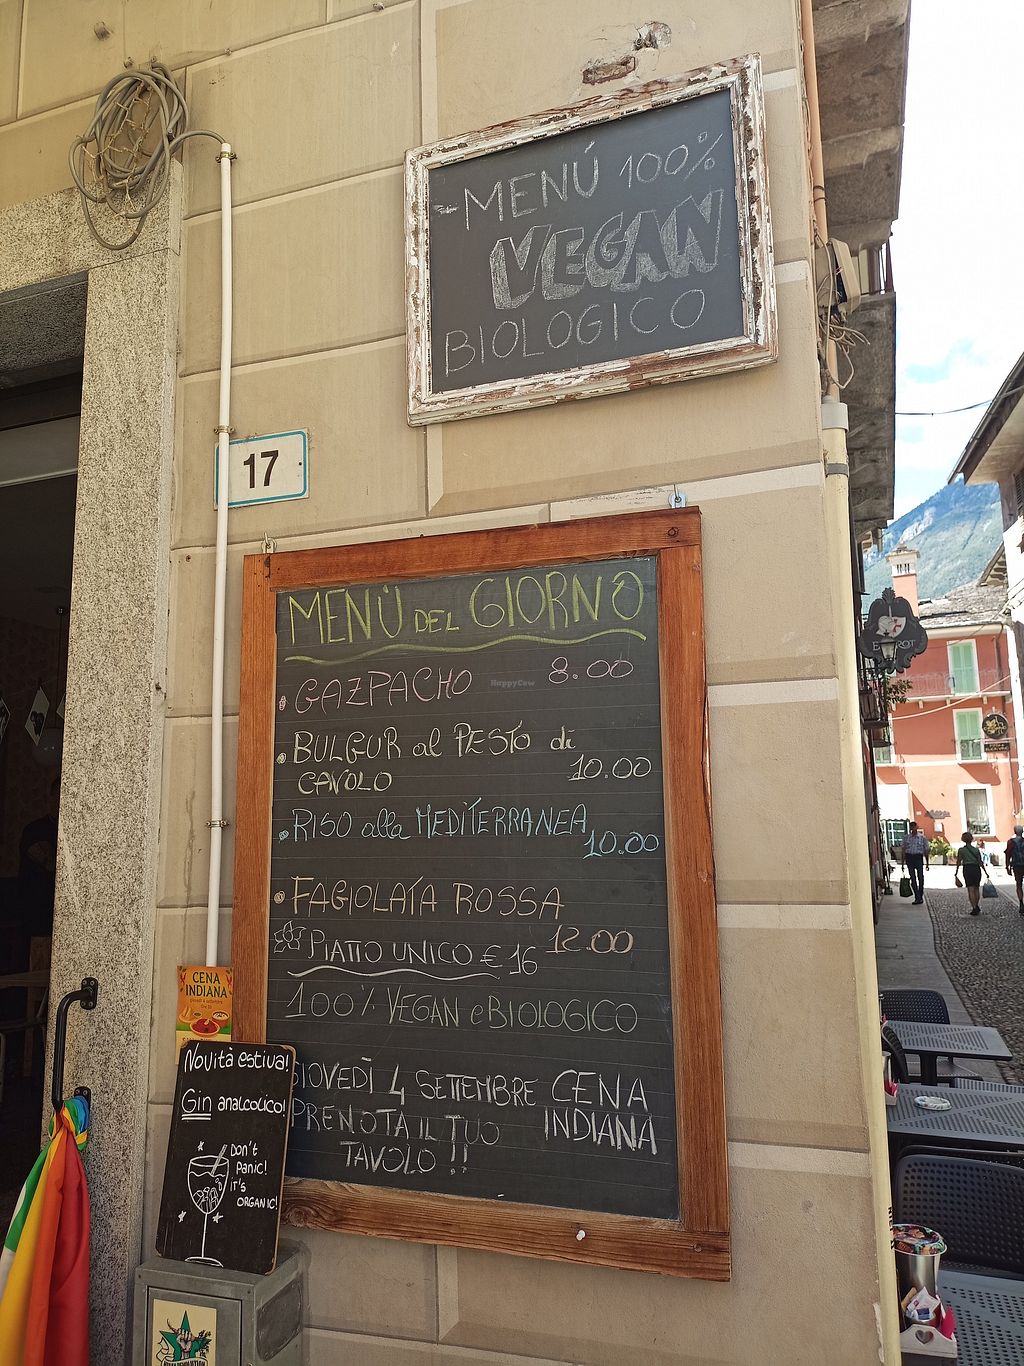 MENÚ 100%
VEGAN
BIOLOGICO
17
MENÙ DEL GIORNO
GAZPACHO 8.00
HappyCow
BULGUR al PESTO di
CAVOLO 10.00
RISO alla MEDITERRANEA
10.00
FAGIOLATA ROSSA
12.00
PIATTO UNICO € 16
100% VEGAN e BIOLOGICO
GIOVEDÌ 4 SETTEMBRE CENA
PRENOTA IL TUO INDIANA
TAVOLO !!
CENA
INDIANA
Novità estiva!
Gin analcolico!
Don't
Panic!
it's
ORGANIC!